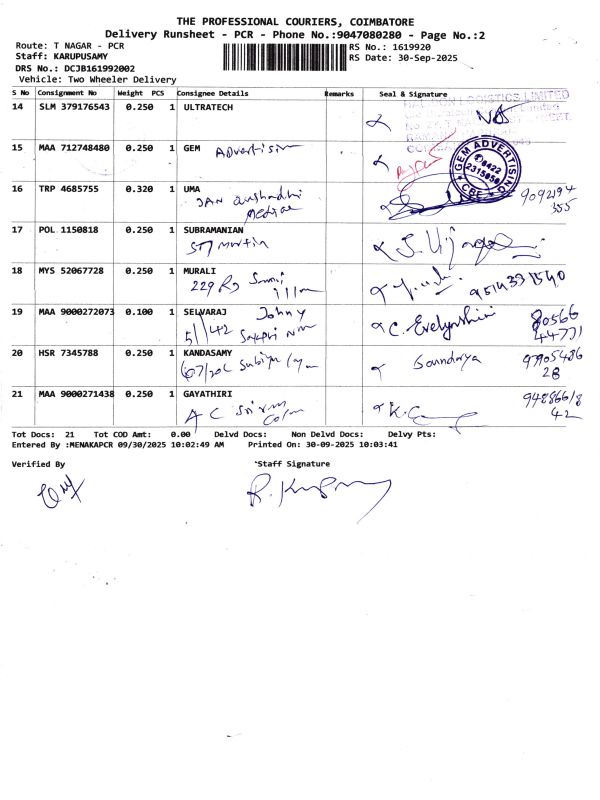 THE PROFESSIONAL COURIERS, COIMBATORE
Delivery Runsheet - PCR - Phone No.:9047080280 - Page No.:2
Route: T NAGAR - PCR RS No.: 1619920
Staff: KARUPUSAMY RS Date: 30-Sep-2025
DRS No.: DCJB161992002
Vehicle: Two Wheeler Delivery
S No Consignment No Weight PCS Consignee Details Remarks Seal & Signature
14 SLM 379176543 0.250 1 ULTRATECH
LOGISTICS LIMITED
15 MAA 712748480 0.250 1 GEM Advertisin
GEM ADVERTISING
0422
2315056
CBE
16 TRP 4685755 0.320 1 UMA
JAN aushadhi
medical
9092194
355
17 POL 1150818 0.250 1 SUBRAMANIAN
ST martin
18 MYS 52067728 0.250 1 MURALI
229 Rd
9514331540
19 MAA 9000272073 0.100 1 SELVARAJ Johny
5/142
C. Evelynshini
80566
44771
20 HSR 7345788 0.250 1 KANDASAMY
Soundarya
97905486
28
21 MAA 9000271438 0.250 1 GAYATHIRI
A C
K.C
94886618
42
Tot Docs: 21 Tot COD Amt: 0.00 Delvd Docs: Non Delvd Docs: Delvy Pts:
Entered By :MENAKAPCR 09/30/2025 10:02:49 AM Printed On: 30-09-2025 10:03:41
Verified By Staff Signature